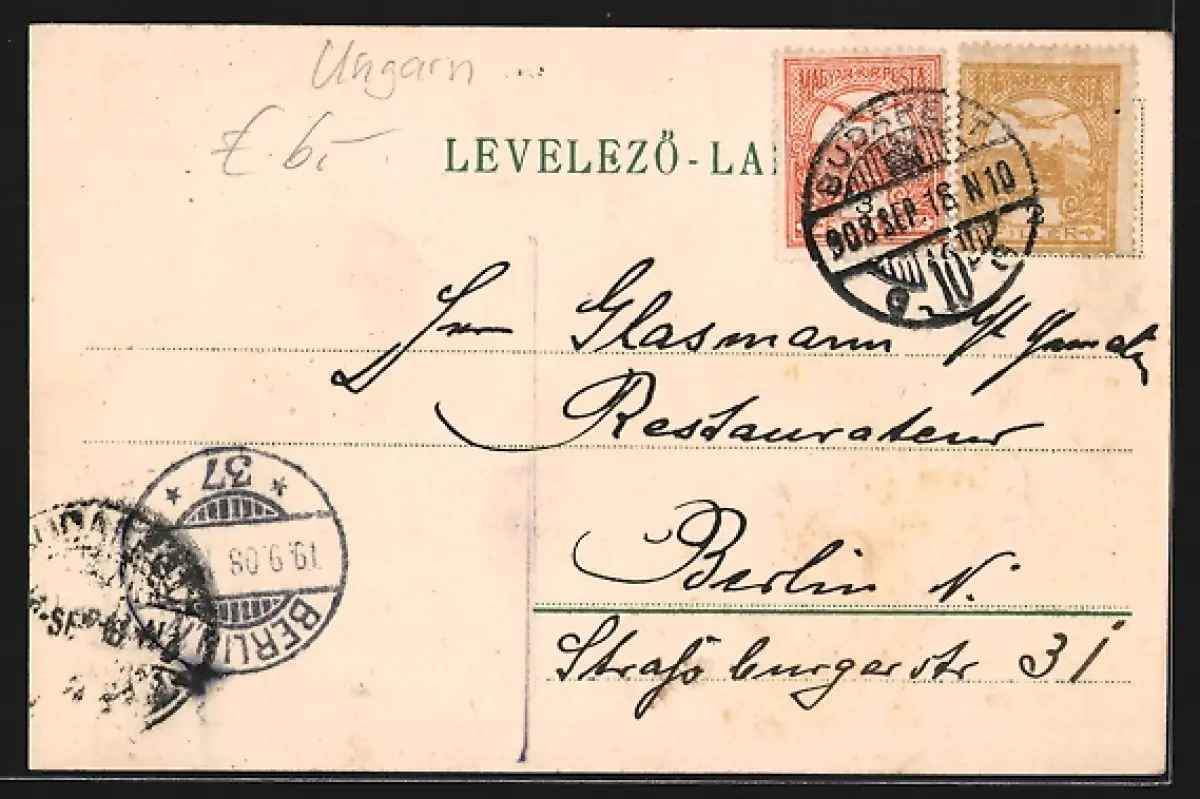 Ungarn
LEVELEZŐ-LA
MAGYAR KIR. POSTA
BUDAPEST
3
908 SEP. 18. N10
10
Herr Glasmann
Restaurateur
Berlin N.
Straßburgerstr 31
37
19.9.08
BERLIN